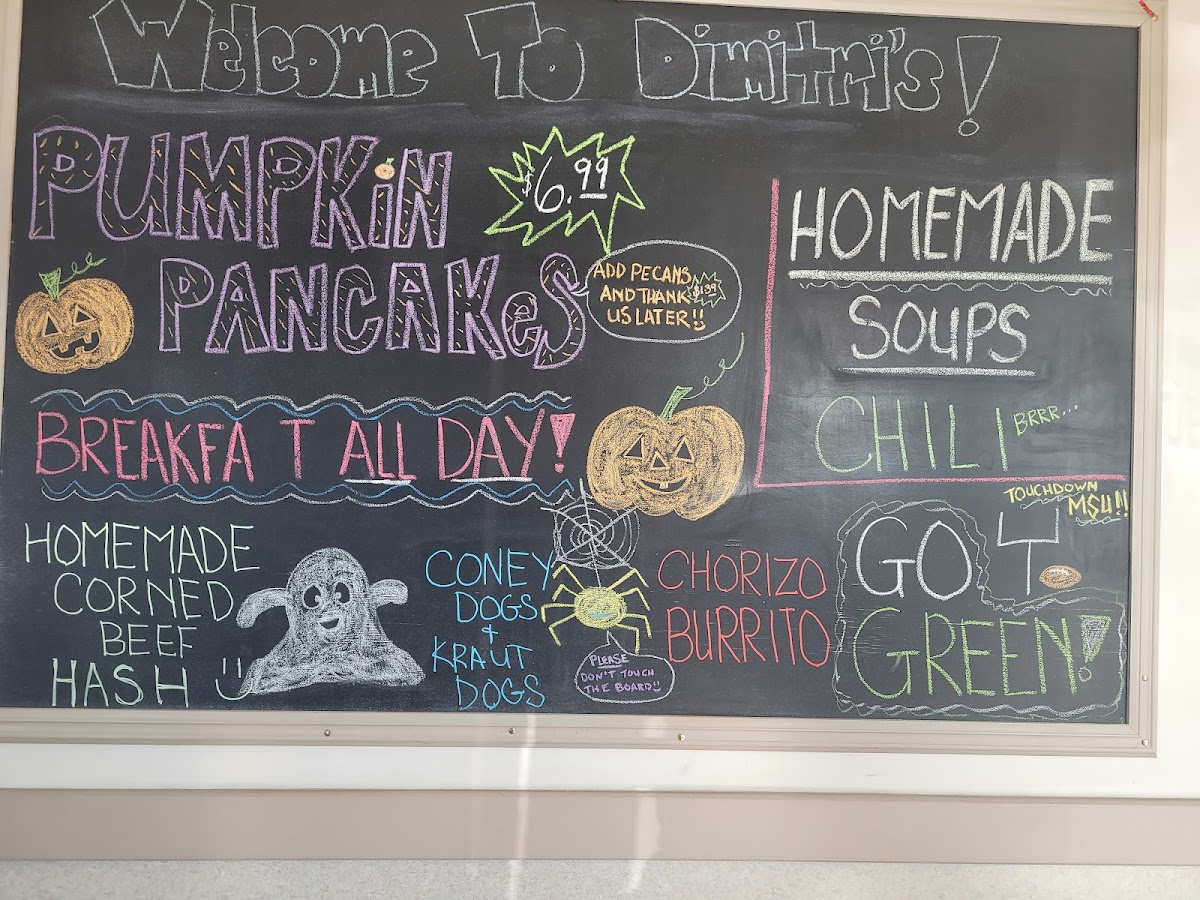 Welcome To Dimitri's!
PUMPKiN
PANCAKeS
$6.99
ADD PECANS
AND THANK $1.39
US LATER!!
BREAKFA T ALL DAY!
HOMEMADE
SOUPS
CHILI BRRR...
HOMEMADE
CORNED
BEEF
HASH
CONEY
DOGS
+
KRAUT
DOGS
PLEASE
DON'T TOUCH
THE BOARD
CHORIZO
BURRITO
TOUCHDOWN
MSU!!
GO
GREEN!